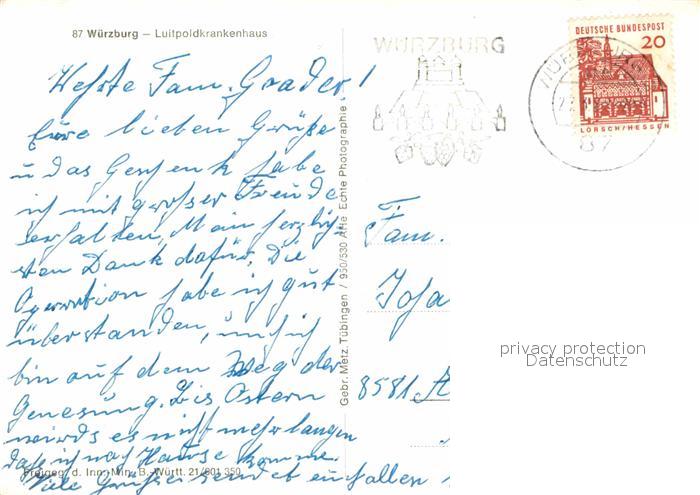 87 Würzburg – Luitpoldkrankenhaus
WÜRZBURG
DEUTSCHE BUNDESPOST
20
LORSCH/HESSEN
87
Werte Fam. Grader!
Eure lieben Grüße
u das Geschenk habe
ich mit großer Freude
erhalten, Mein herzlich-
sten Dank dafür, Die
Operration habe ich gut
überstanden, und ich
bin auf dem Weg der
Genesung. Bis Ostern
wirds es nicht mehr langen
das ich nach Hause komme.
Viele Grüße sendet euch allen
Fam.
Joha
8581 A
Gebr. Metz, Tübingen / 950/530 Affe Echte Photographie
Freigeg. d. Inn.-Min. B.-Württ. 21/601 350
privacy protection
Datenschutz